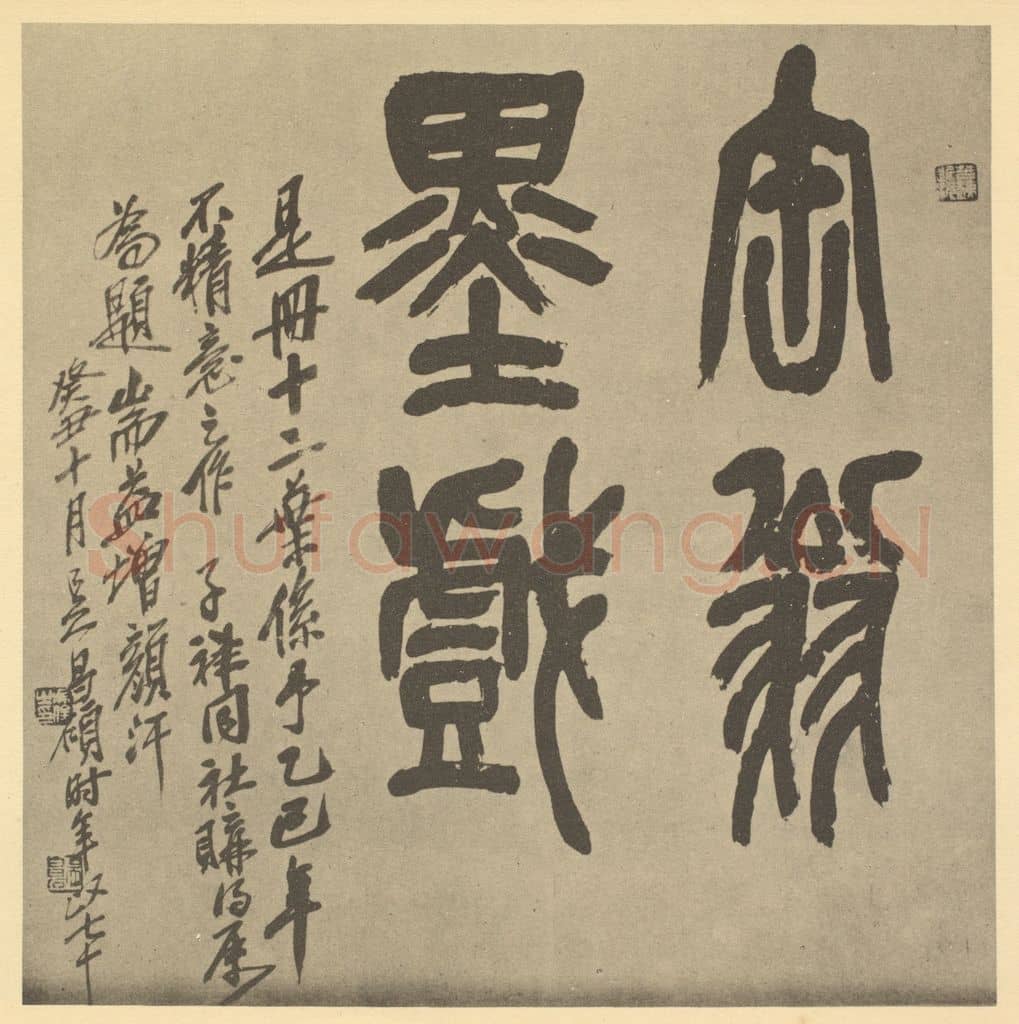 缶翁
墨戲
是冊十二葉係予乙巳年
不精意之作 子同社購得屬
為題耑益增顏汗
癸丑十月吳昌碩时年政七十
Shufawang.CN